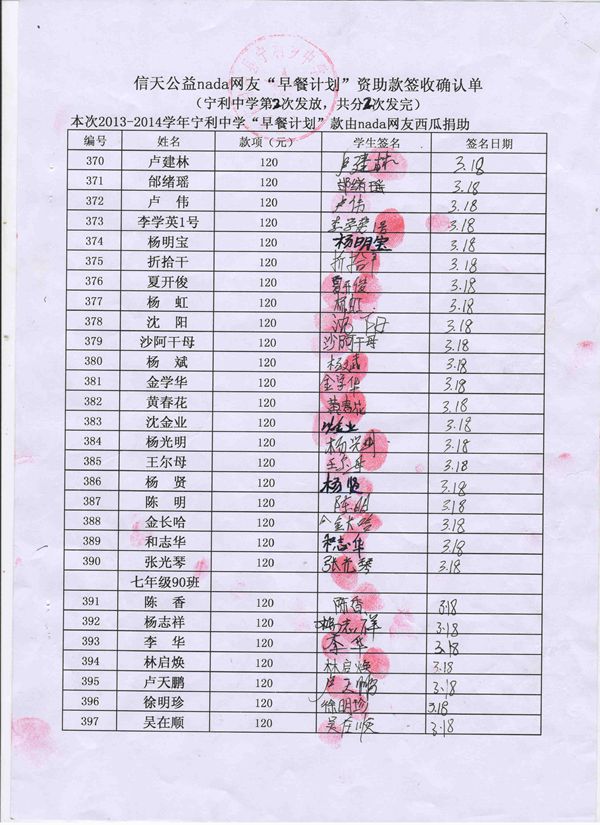 信天公益nada网友“早餐计划”资助款签收确认单
（宁利中学第2次发放，共分2次发完）
本次2013-2014学年宁利中学“早餐计划”款由nada网友西瓜捐助
编号 姓名 款项（元） 学生签名 签名日期
370 卢建林 120 卢建林 3.18
371 邰绪瑶 120 邰绪瑶 3.18
372 卢 伟 120 卢伟 3.18
373 李学英1号 120 李学英1号 3.18
374 杨明宝 120 杨明宝 3.18
375 折拾干 120 折拾干 3.18
376 夏开俊 120 夏开俊 3.18
377 杨 虹 120 杨虹 3.18
378 沈 阳 120 沈阳 3.18
379 沙阿干母 120 沙阿干母 3.18
380 杨 斌 120 杨斌 3.18
381 金学华 120 金学华 3.18
382 黄春花 120 黄春花 3.18
383 沈金业 120 沈金业 3.18
384 杨光明 120 杨光明 3.18
385 王尔母 120 王尔母 3.18
386 杨 贤 120 杨贤 3.18
387 陈 明 120 陈明 3.18
388 金长哈 120 金长哈 3.18
389 和志华 120 和志华 3.18
390 张光琴 120 张光琴 3.18
七年级90班
391 陈 香 120 陈香 3.18
392 杨志祥 120 杨志祥 3.18
393 李 华 120 李华 3.18
394 林启焕 120 林启焕 3.18
395 卢天鹏 120 卢天鹏 3.18
396 徐明珍 120 徐明珍 3.18
397 吴在顺 120 吴在顺 3.18